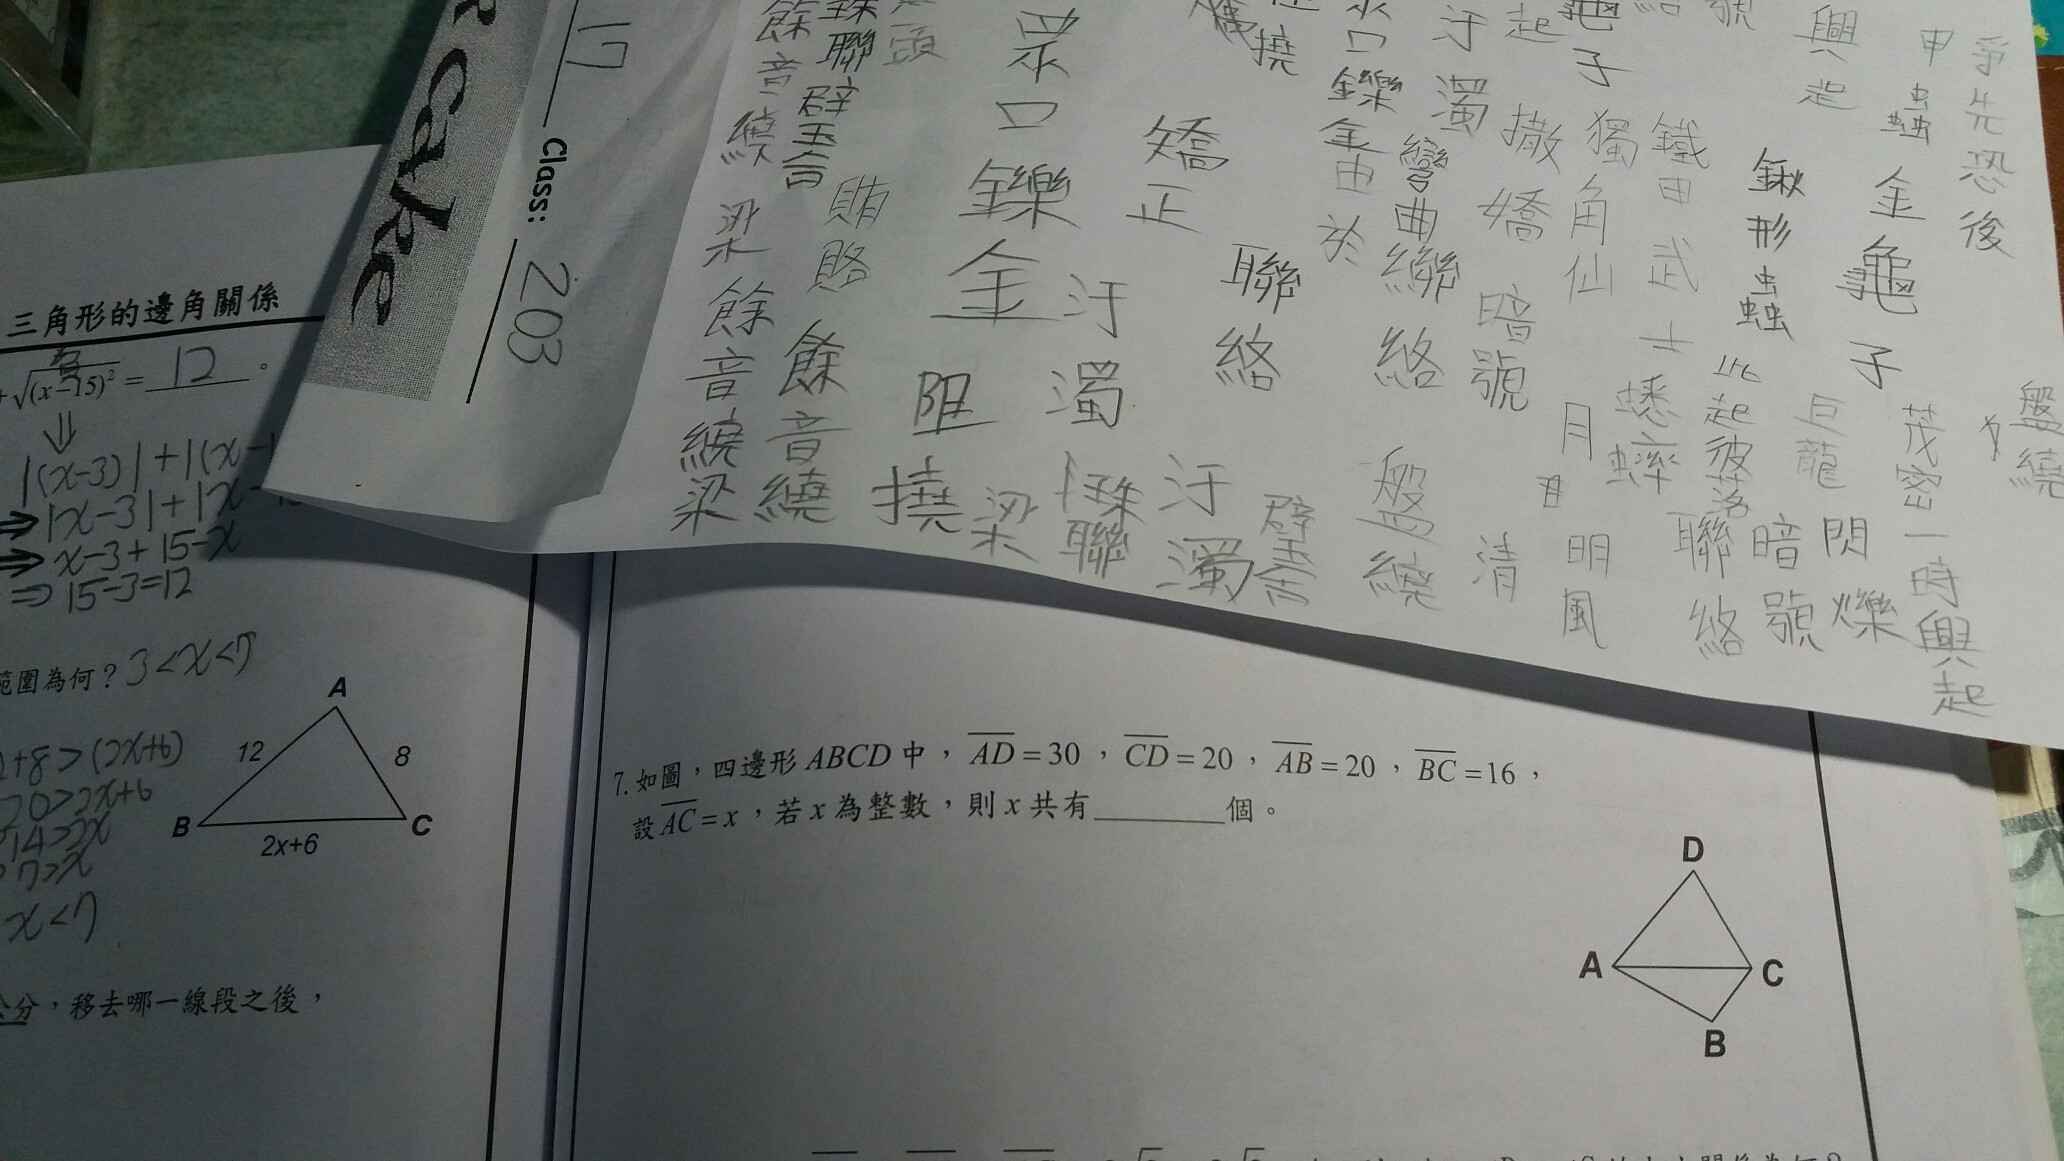 三角形的邊角關係
+√(x-15)² = 12 。
⇓
|(x-3)|+|(x-1
⇒|x-3|+|x-
⇒ x-3+15-x
⇒ 15-3=12
範圍為何？3<x<7
+8>(2x+6)
20>2x+6
14>2x
7>x
x<7
A
12
8
B
C
2x+6
公分，移去哪一線段之後，
rake
17 Class: 203
爭先恐後
盤繞
甲蟲金龜子
茂密一時興起
興起
巨龍
閃爍
鍬形蟲
此起彼落
暗號
鐵甲武士
蟋蟀
聯絡
龜子
獨角仙
月
明風
起
撒嬌
暗號
清
汙濁
彎曲
聯絡
盤繞
口鑠金由於
撓
聯絡
璧
矯正
汙濁
眾口鑠金
汙濁
聯
阻撓
梁
賄賂
餘音繞
聯璧合
餘音繞梁
餘音繞梁
7. 如圖，四邊形ABCD中，AD=30，CD=20，AB=20，BC=16，
設AC=x，若x為整數，則x共有________個。
D
A
C
B